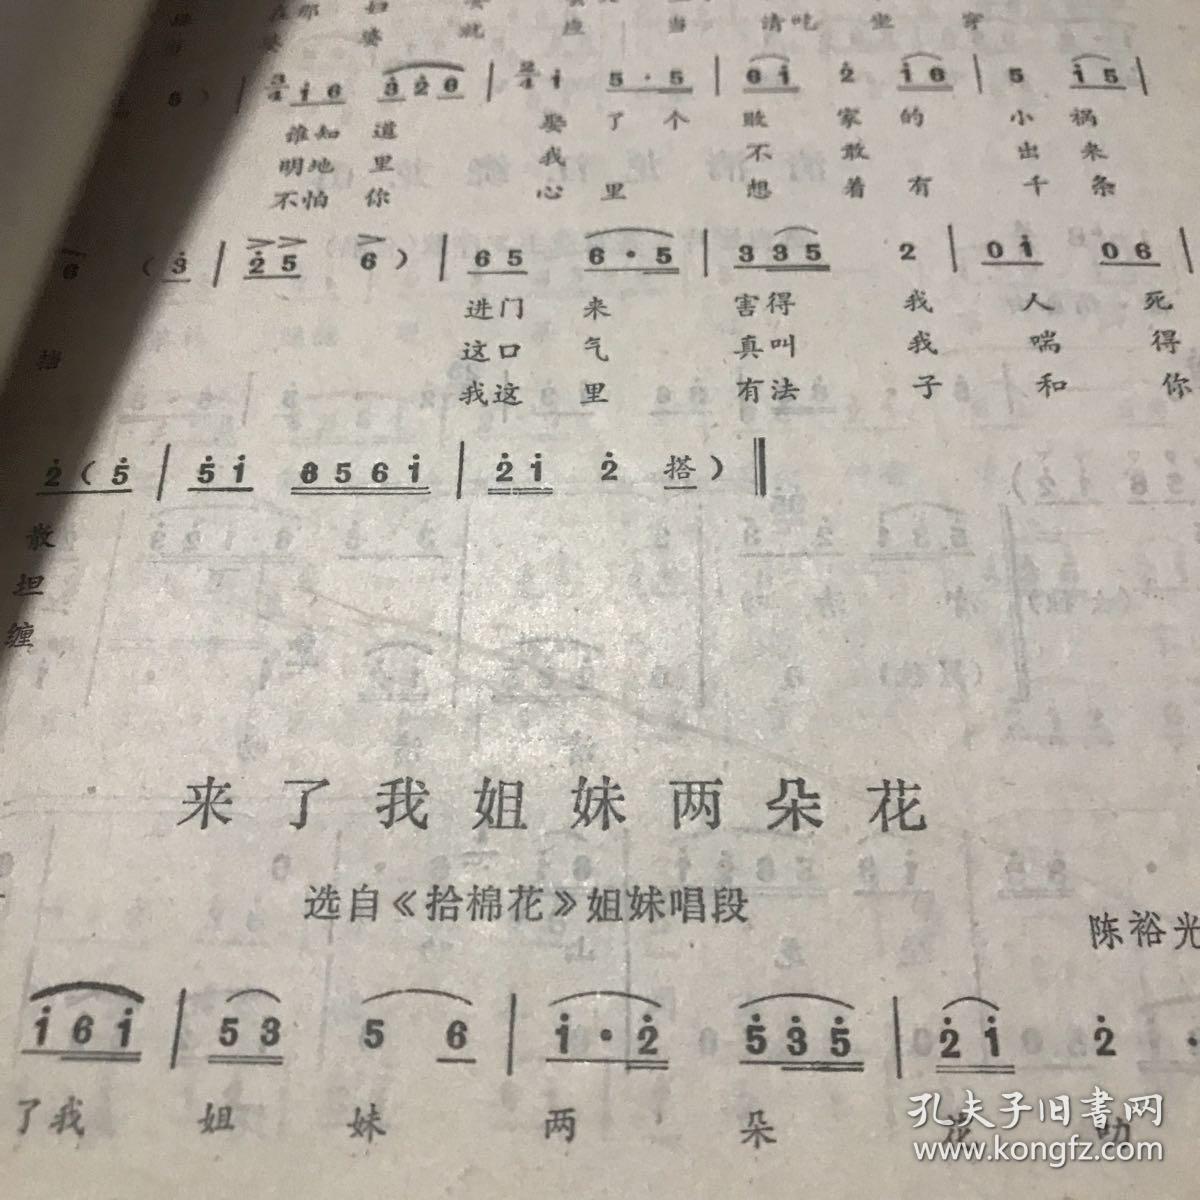 在那 妇
婆 就 应 当 请吃 坐 穿
6 ) | 3/4 i 6 3 2 6 | 2/4 i 5 · 5 | 6 i 2 i 6 | 5 i 5 |
谁知 道 娶 了 个 败 家 的 小 祸
明地 里 我 不 敢 出 来
不怕 你 心 里 想 着 有 千 条
6 ( 3 | 2 5 6 ) | 6 5 6 · 5 | 3 3 5 2 | 0 i 0 6 |
进门 来 害得 我 人 死
这口 气 真叫 我 喘 得
我这 里 有法 子 和 你
2 ( 5 | 5 i 6 5 6 i | 2 i 2 搭 ) ‖
散
坦
缠
来了我姐妹两朵花
选自《拾棉花》姐妹唱段
陈裕光
i 6 i | 5 3 5 6 | i · 2 5 3 5 | 2 i 2 ·
了我 姐 妹 两 朵 花 叻
孔夫子旧书网
www.kongfz.com